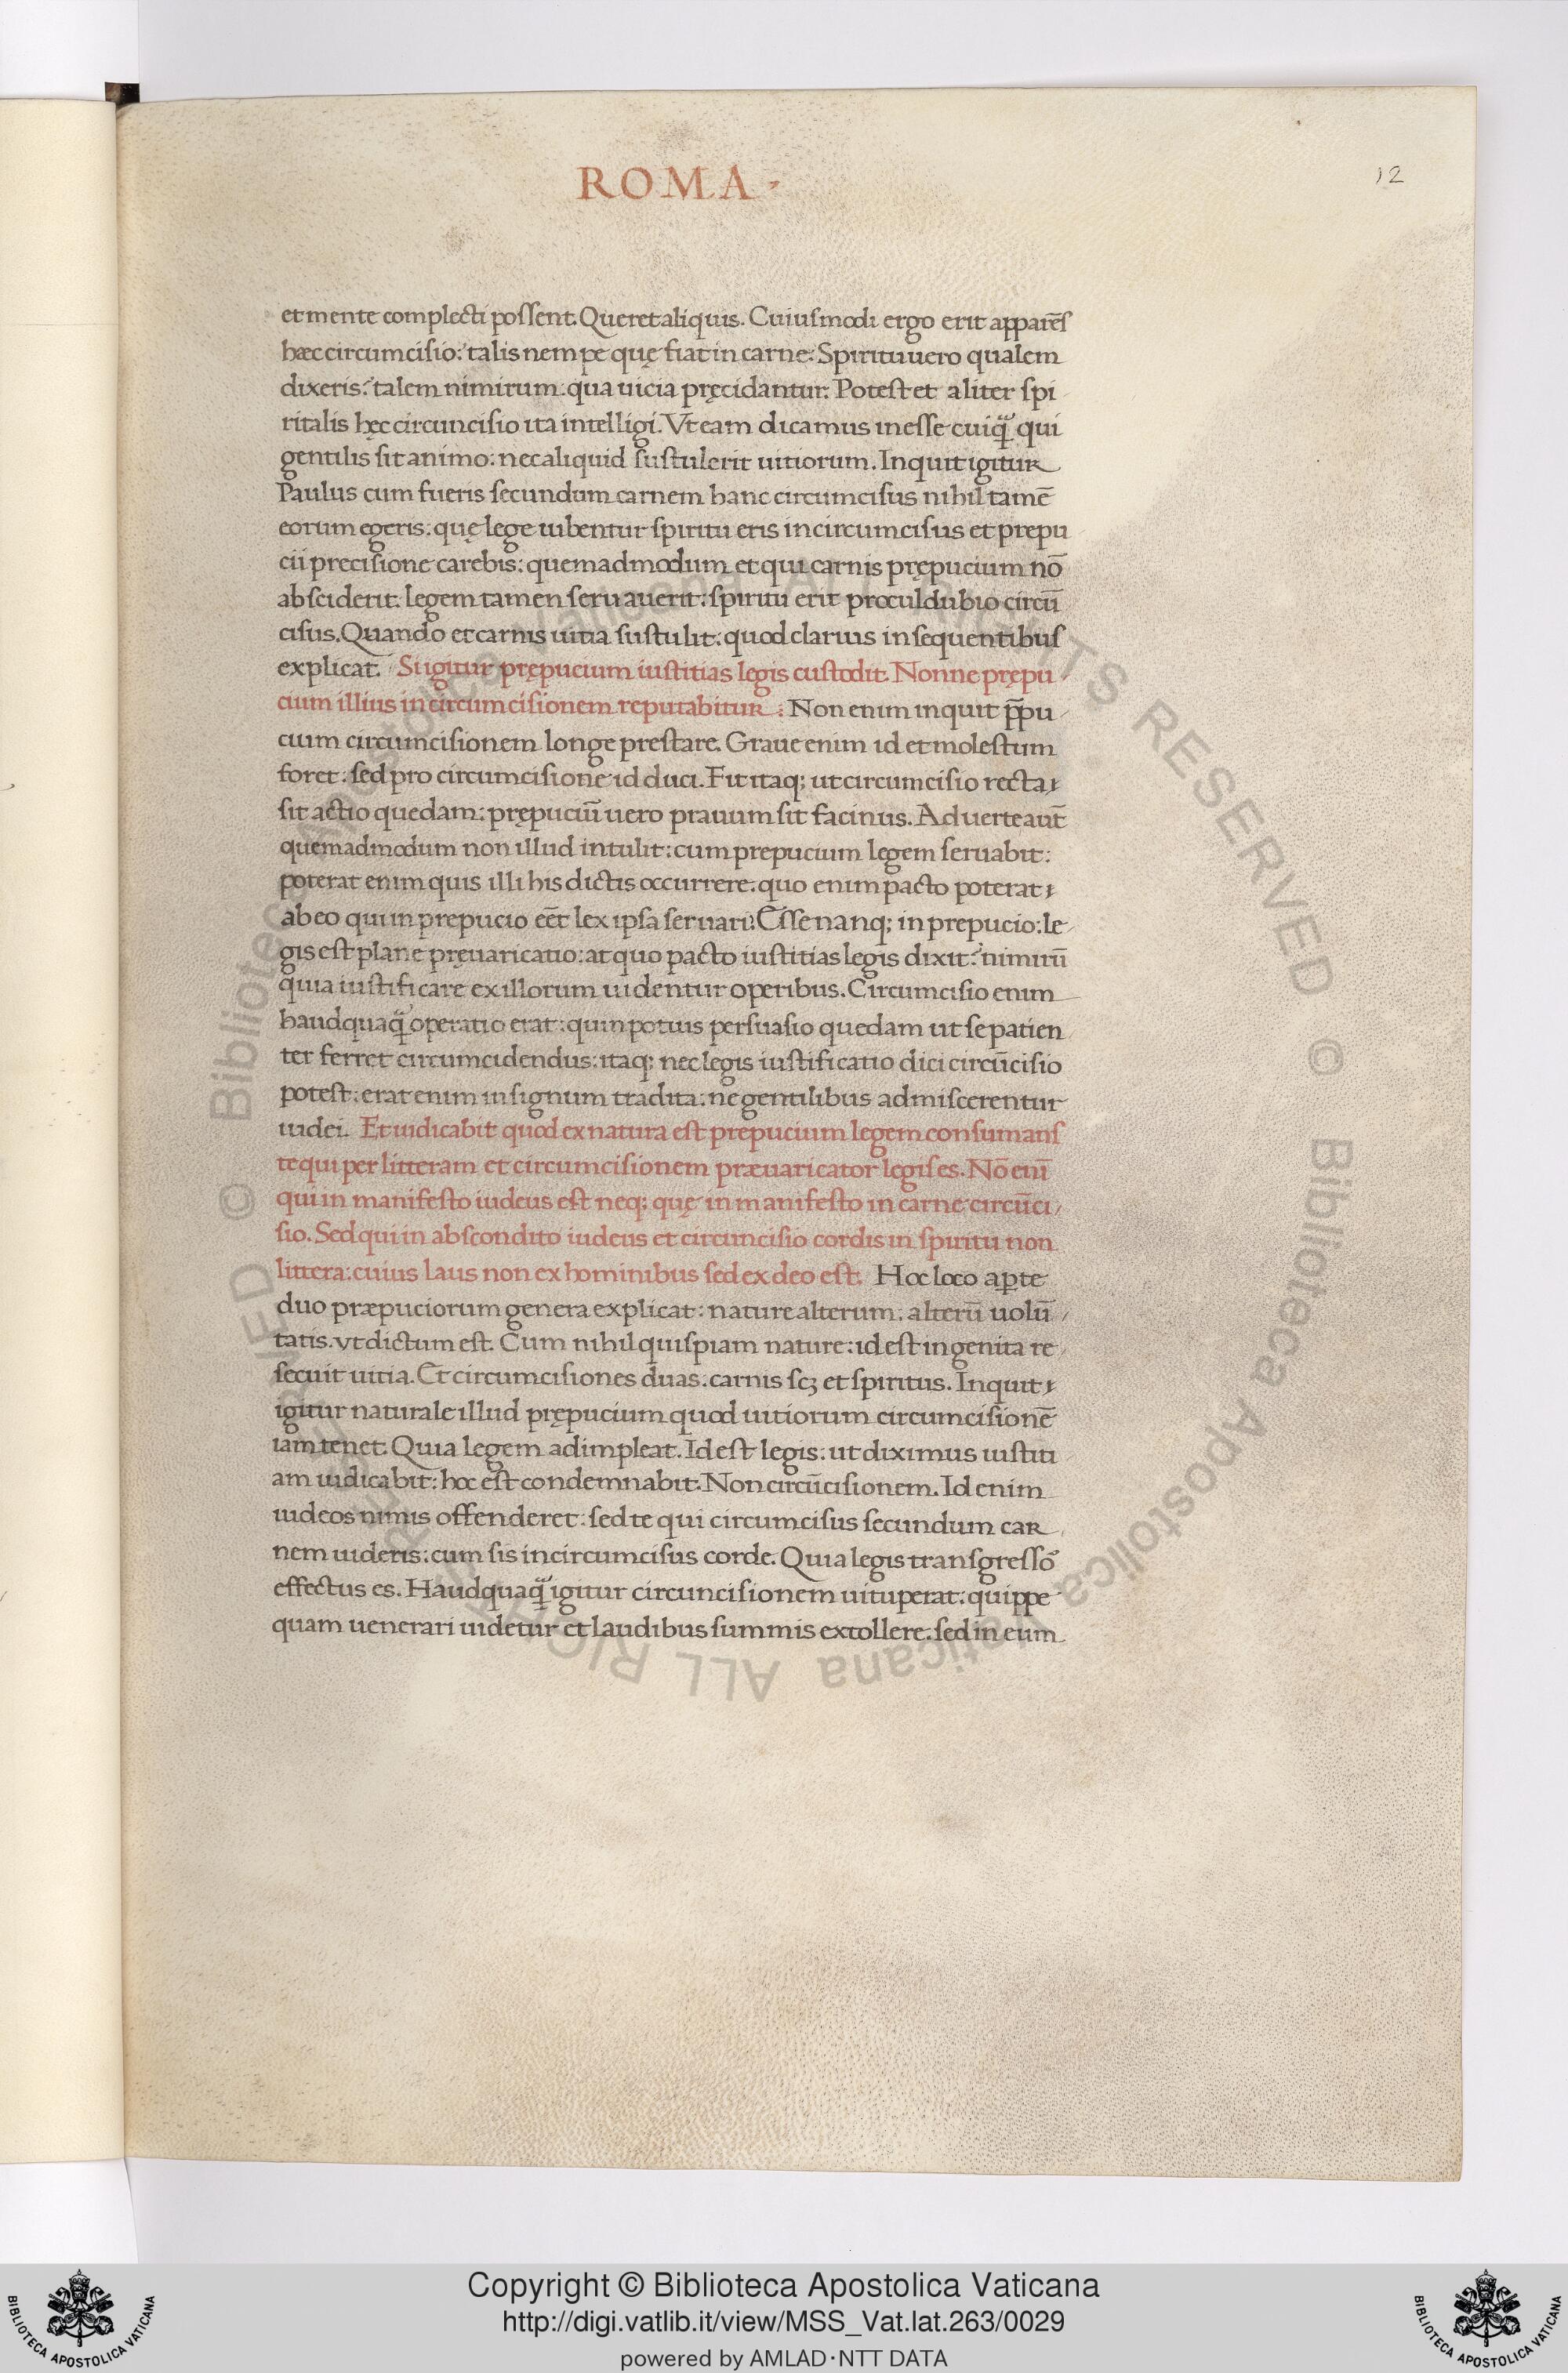 ROMA
12
et mente complecti possent. Queret aliquis. Cuiusmodi ergo erit apparẽs
hæc circumcisio: talis nempe quę fiat in carne: Spiritu uero qualem
dixeris: talem nimirum: qua uicia pręcidantur. Potest et aliter spi
ritalis hęc circuncisio ita intelligi. Vt eam dicamus inesse cuiq̃ qui
gentilis sit animo: nec aliquid sustulerit uitiorum. Inquit igitur
Paulus cum fueris secundum carnem hanc circumcisus nihil tamẽ
eorum egeris: quę lege iubentur spiritu eris incircumcisus et prepu
cii precisione carebis: quemadmodum et qui carnis prępucium nõ
absciderit: legem tamen seruauerit: spiritu erit proculdubio circũ
cisus. Quando et carnis uitia sustulit: quod clarius in sequentibus
explicat. Si igitur prępucium iustitias legis custodit. Nonne prępu
cium illius in circumcisionem reputabitur: Non enim inquit p̃pu
cium circumcisionem longe prestare. Graue enim id et molestum
foret: sed pro circumcisione id duci. Fit itaq; ut circumcisio recta
sit actio quedam: prępuciũ uero prauum sit facinus. Aduerte aut̃
quemadmodum non illud intulit: cum prepucium legem seruabit:
poterat enim quis illi his dictis occurrere. quo enim pacto poterat
ab eo qui in prepucio eẽt lex ipsa seruari? Esse nanq; in prepucio: le
gis est plane pręuaricatio: at quo pacto iustitias legis dixit? nimirũ
quia iustificare ex illorum uidentur operibus. Circumcisio enim
haudquaq̃ operatio erat: quin potius persuasio quedam ut se patien
ter ferret circumcidendus: itaq; nec legis iustificatio dici circũcisio
potest: erat enim in signum tradita: ne gentilibus admiscerentur
iudei. Et iudicabit quod ex natura est prepucium legem consumans
te qui per litteram et circumcisionem præuaricator legis es. Nõ enĩ
qui in manifesto iudeus est neq; quę in manifesto in carne circũci
sio. Sed qui in abscondito iudeus et circumcisio cordis in spiritu non
littera: cuius laus non ex hominibus sed ex deo est. Hoc loco ap̲te
duo præpuciorum genera explicat: nature alterum: alterũ uolũ
tatis. vt dictum est. Cum nihil quispiam nature: id est ingenita re
secuit uitia. Et circumcisiones duas: carnis scꝫ et spiritus. Inquit
igitur naturale illud prępucium quod uitiorum circumcisionẽ
iam tenet. Quia legem adimpleat. Id est legis: ut diximus iustiti
am iudicabit: hoc est condemnabit. Non circũcisionem. Id enim
iudeos nimis offenderet: sed te qui circumcisus secundum car
nem uideris: cum sis incircumcisus corde. Quia legis transgressõ
effectus es. Haudquaq̃ igitur circuncisionem uituperat: quippe
quam uenerari uidetur et laudibus summis extollere: sed in eum
© Biblioteca Apostolica Vaticana ALL RIGHTS RESERVED © Biblioteca Apostolica Vaticana ALL RIGHTS RESERVED
Copyright © Biblioteca Apostolica Vaticana
http://digi.vatlib.it/view/MSS_Vat.lat.263/0029
powered by AMLAD·NTT DATA
BIBLIOTECA APOSTOLICA VATICANA
BIBLIOTECA APOSTOLICA VATICANA